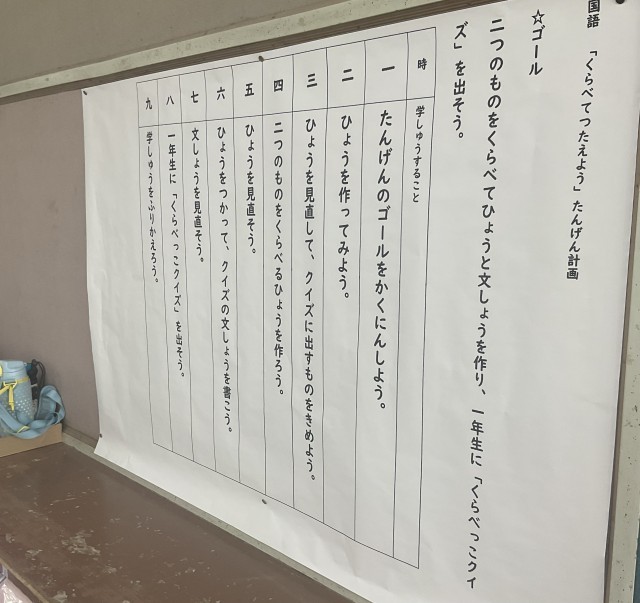 国語 「くらべてつたえよう」たんげん計画
☆ゴール
二つのものをくらべてひょうと文しょうを作り、一年生に「くらべっこクイ
ズ」を出そう。
時 学しゅうすること
一 たんげんのゴールをかくにんしよう。
二 ひょうを作ってみよう。
三 ひょうを見直して、クイズに出すものをきめよう。
四 二つのものをくらべるひょうを作ろう。
五 ひょうを見直そう。
六 ひょうをつかって、クイズの文しょうを書こう。
七 文しょうを見直そう。
八 一年生に「くらべっこクイズ」を出そう。
九 学しゅうをふりかえろう。